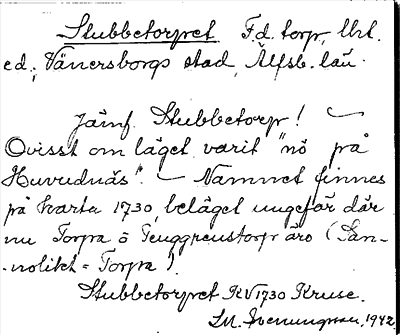 Stubbetorpet F.d. torp, Urt.
ed., Vänersborgs stad, Älfsb. län.
Jämf. Stubbetorp! —
Ovisst om läget varit "nö på
Huvudnäs". — Namnet finnes
på karta 1730, beläget ungefär där
nu Torpa ö Teuggrenstorp äro (San-
-nolikt = Torpa).
Stubbetorpet RV 1730 Kruse.
1942